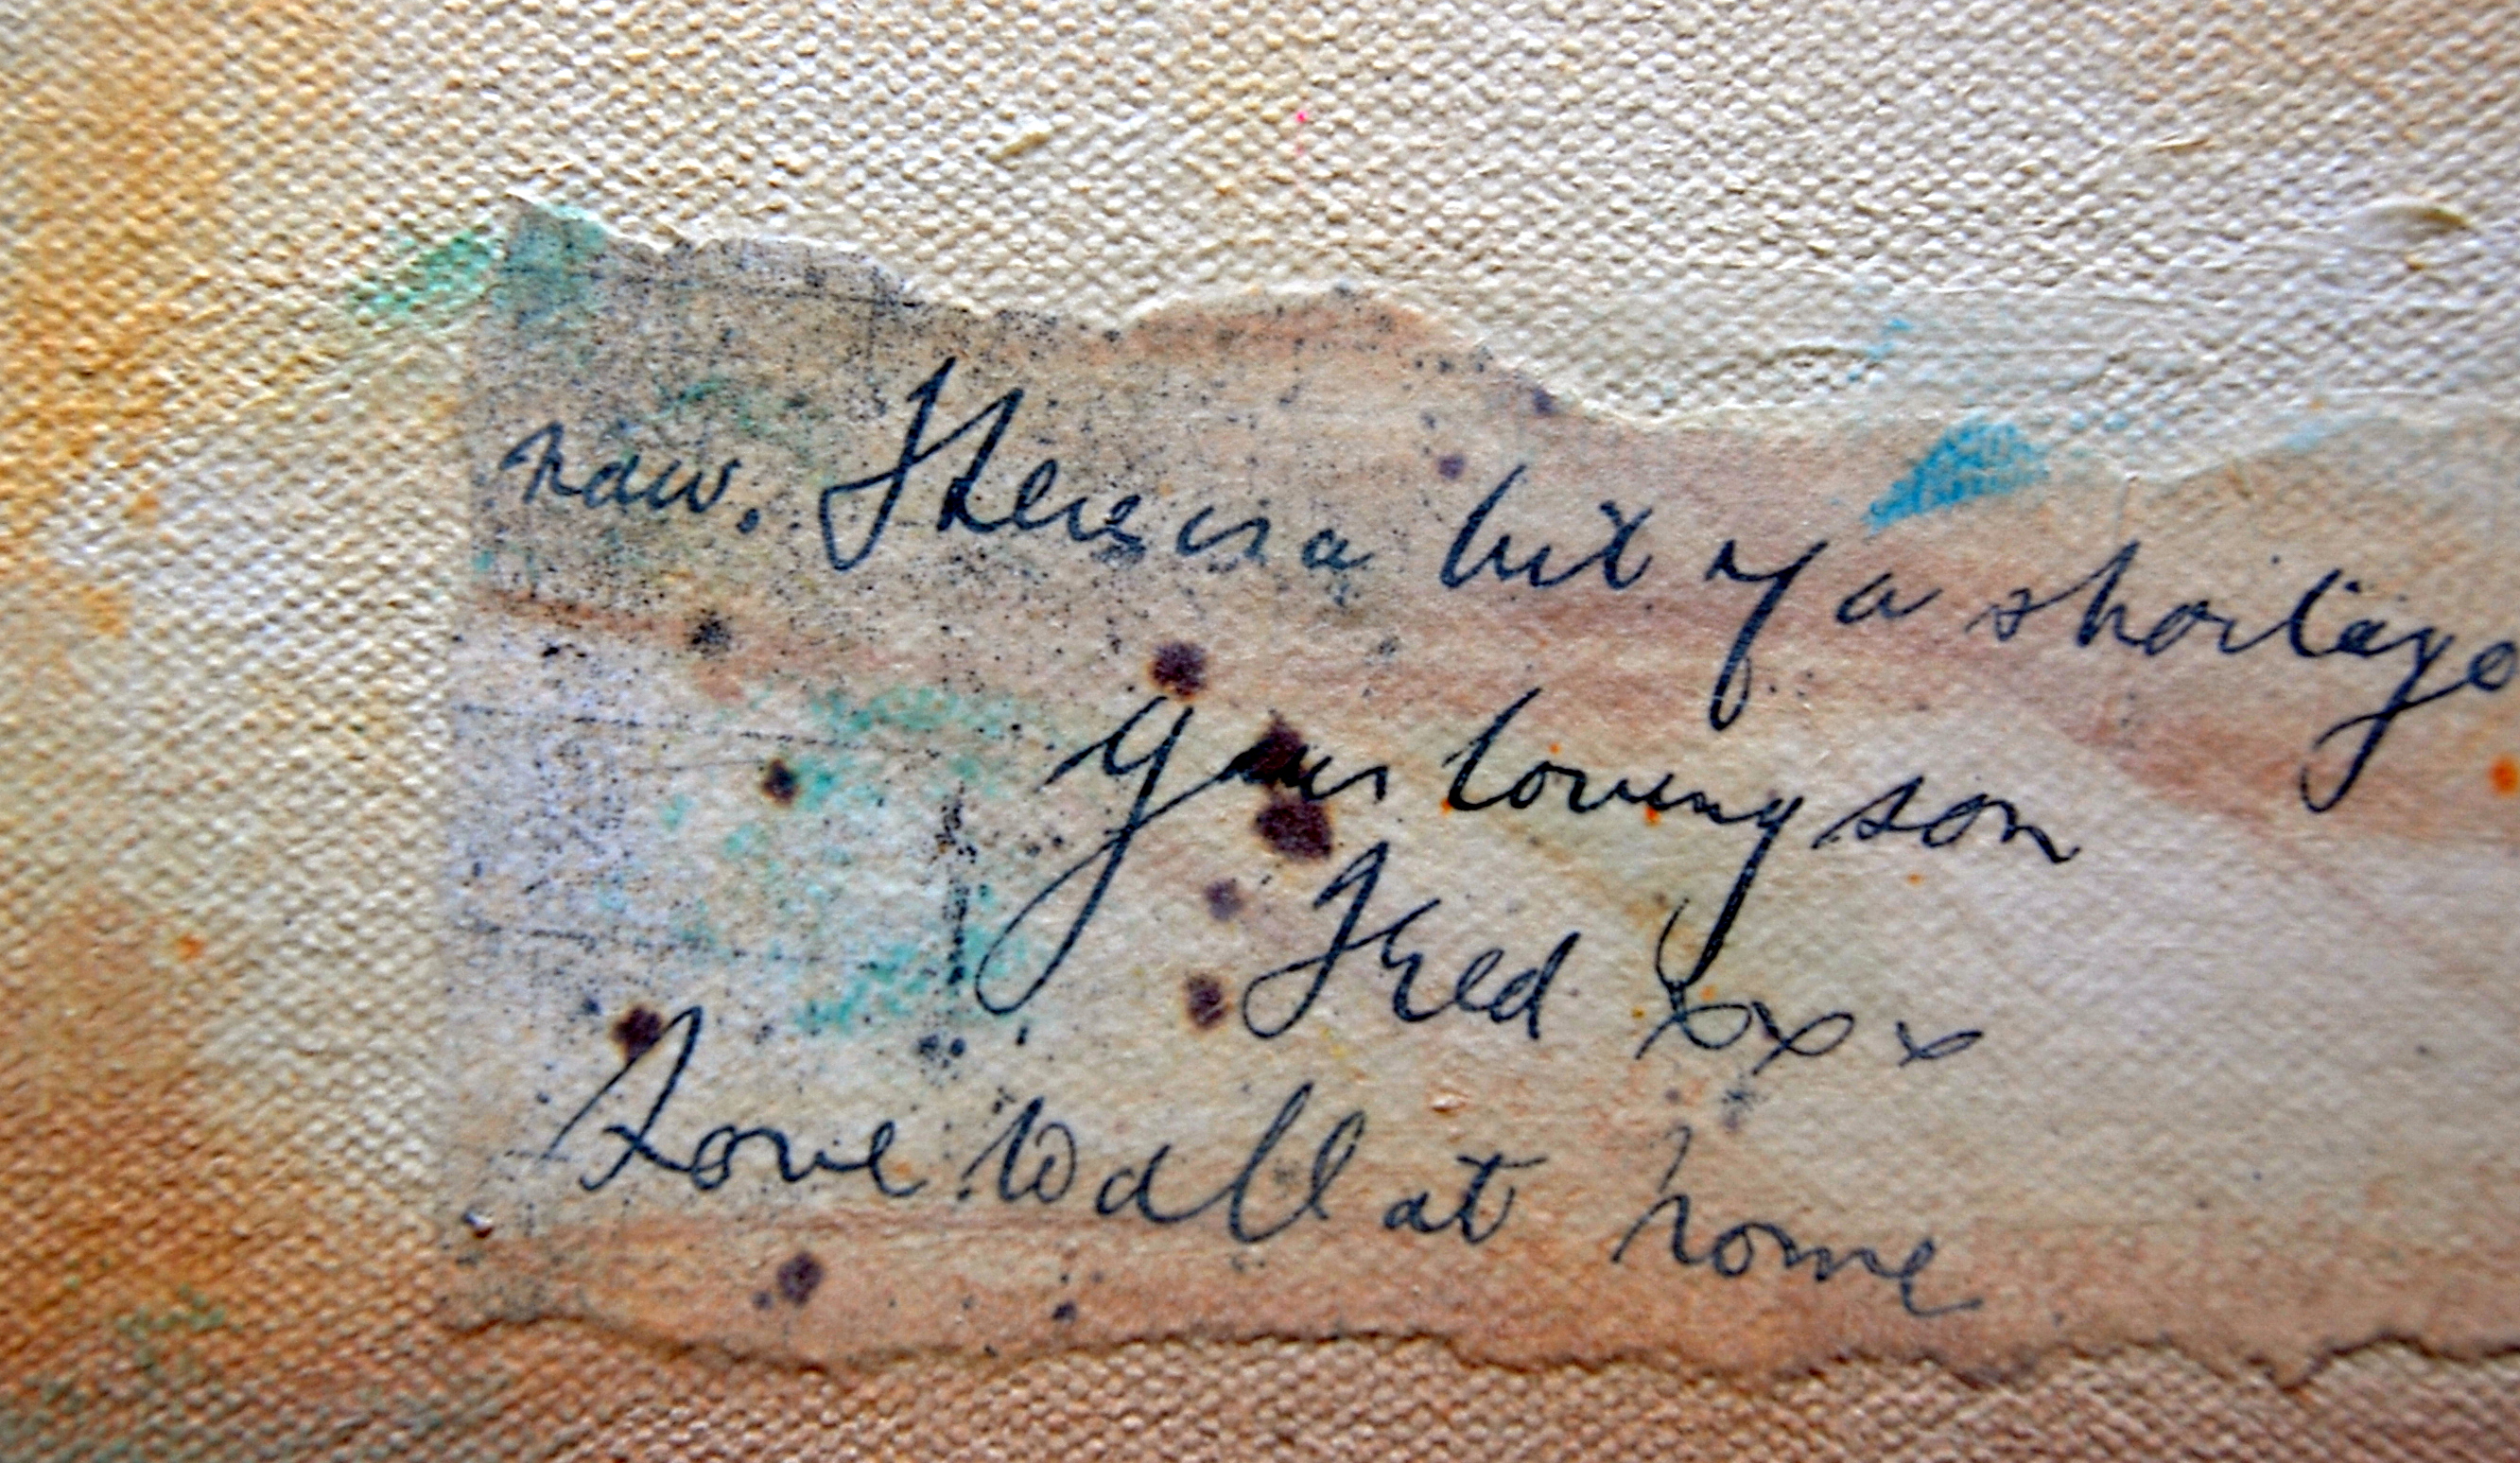 now. There is a bit of a shortage
Your loving son
Fred xxx
Love to all at home